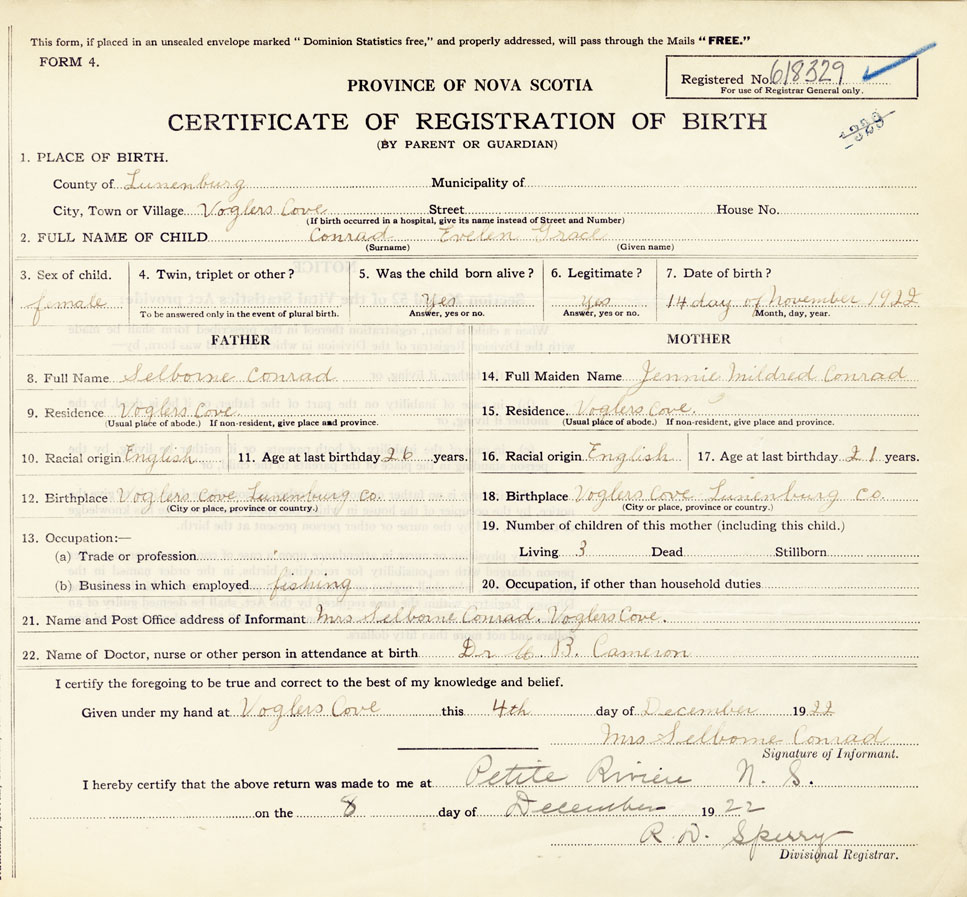 This form, if placed in an unsealed envelope marked “Dominion Statistics free,” and properly addressed, will pass through the Mails “FREE.”
FORM 4.
Registered No. 618329
For use of Registrar General only.
PROVINCE OF NOVA SCOTIA
CERTIFICATE OF REGISTRATION OF BIRTH
(BY PARENT OR GUARDIAN)
1. PLACE OF BIRTH.
County of Lunenburg Municipality of
City, Town or Village Voglers Cove Street House No.
(If birth occurred in a hospital, give its name instead of Street and Number)
2. FULL NAME OF CHILD Conrad Evelen Grace
(Surname) (Given name)
3. Sex of child. 4. Twin, triplet or other? 5. Was the child born alive? 6. Legitimate? 7. Date of birth?
female Yes Yes 14 day of November 1922
To be answered only in the event of plural birth. Answer, yes or no. Answer, yes or no. Month, day, year.
FATHER MOTHER
8. Full Name Selborne Conrad 14. Full Maiden Name Jennie Mildred Conrad
9. Residence Voglers Cove 15. Residence. Voglers Cove.
(Usual place of abode.) If non-resident, give place and province. (Usual place of abode.) If non-resident, give place and province.
10. Racial origin English 11. Age at last birthday 26 years. 16. Racial origin English 17. Age at last birthday 21 years.
12. Birthplace Voglers Cove Lunenburg Co. 18. Birthplace Voglers Cove Lunenburg Co.
(City or place, province or country.) (City or place, province or country.)
13. Occupation:— 19. Number of children of this mother (including this child.)
(a) Trade or profession Living 3 Dead Stillborn
(b) Business in which employed fishing 20. Occupation, if other than household duties
21. Name and Post Office address of Informant Mrs Selborne Conrad. Voglers Cove.
22. Name of Doctor, nurse or other person in attendance at birth Dr B. Cameron
I certify the foregoing to be true and correct to the best of my knowledge and belief.
Given under my hand at Voglers Cove this 4th day of December 1922
Mrs Selborne Conrad
Signature of Informant.
I hereby certify that the above return was made to me at Petite Riviere N. S.
on the 8 day of December 1922
R. D. Sperry
Divisional Registrar.